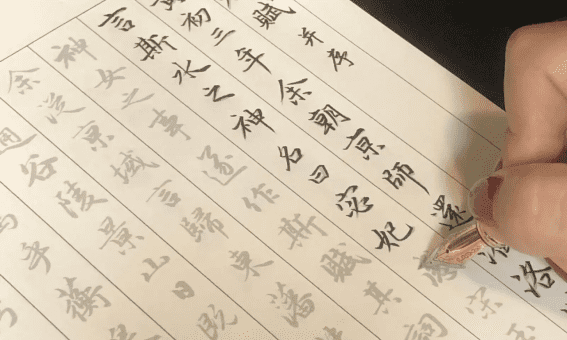 賦 并序
初三年余朝京師還濟洛
言斯水之神名曰宓妃感宋玉
神女之事遂作斯賦其詞
余從京域言歸東藩
通谷陵景山日既
乎蘅